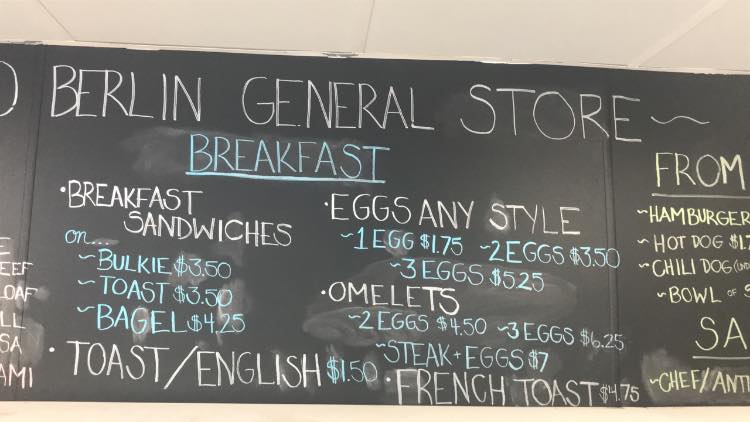 BERLIN GENERAL STORE~
BREAKFAST
·BREAKFAST
SANDWICHES
on...
~BULKIE $3.50
~TOAST $3.50
~BAGEL $4.25
·TOAST/ENGLISH $1.50
·EGGS ANY STYLE
~1 EGG $1.75 ~2 EGGS $3.50
~3 EGGS $5.25
·OMELETS
~2 EGGS $4.50 ~3 EGGS $6.25
~STEAK+EGGS $7
·FRENCH TOAST $4.75
FROM
~HAMBURGER
~HOT DOG $1.7
~CHILI DOG
~BOWL OF
SA
~CHEF/ANT